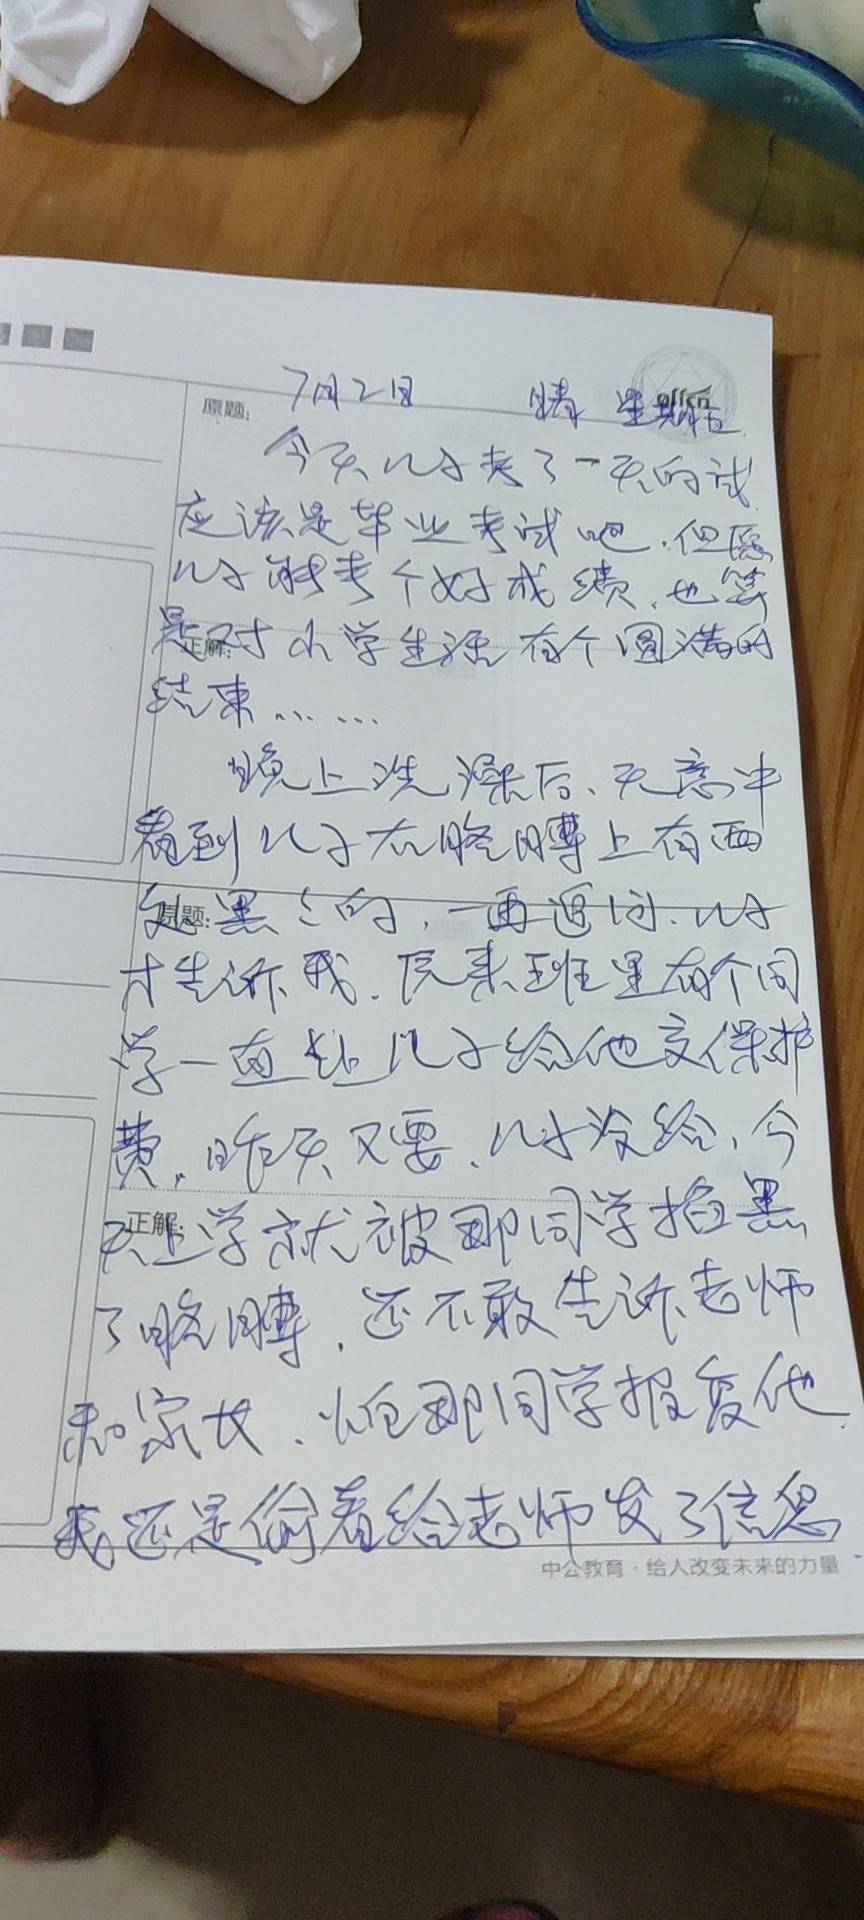 7月2日 晴 星期五
offcn
原题:
今天儿子考了一天的试
应该是毕业考试吧.但愿
儿子能考个好成绩.也算
是对小学生活有个圆满的
正解:
结束……
晚上洗澡后、无意中
看到儿子右胳膊上有两
处黑色的,一再追问.儿子
原题:
才告诉我.原来班里有个同
学一直让儿子给他交保护
费,昨天又要.儿子没给,今
天上学就被那同学掐黑
正解:
了胳膊.还不敢告诉老师
和家长、怕那同学报复他.
我还是偷着给老师发了信息.
中公教育·给人改变未来的力量